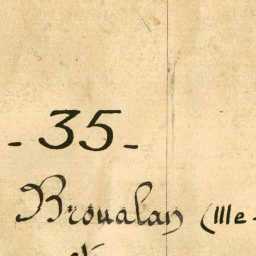 - 35 -
Broualan (Ille-
et